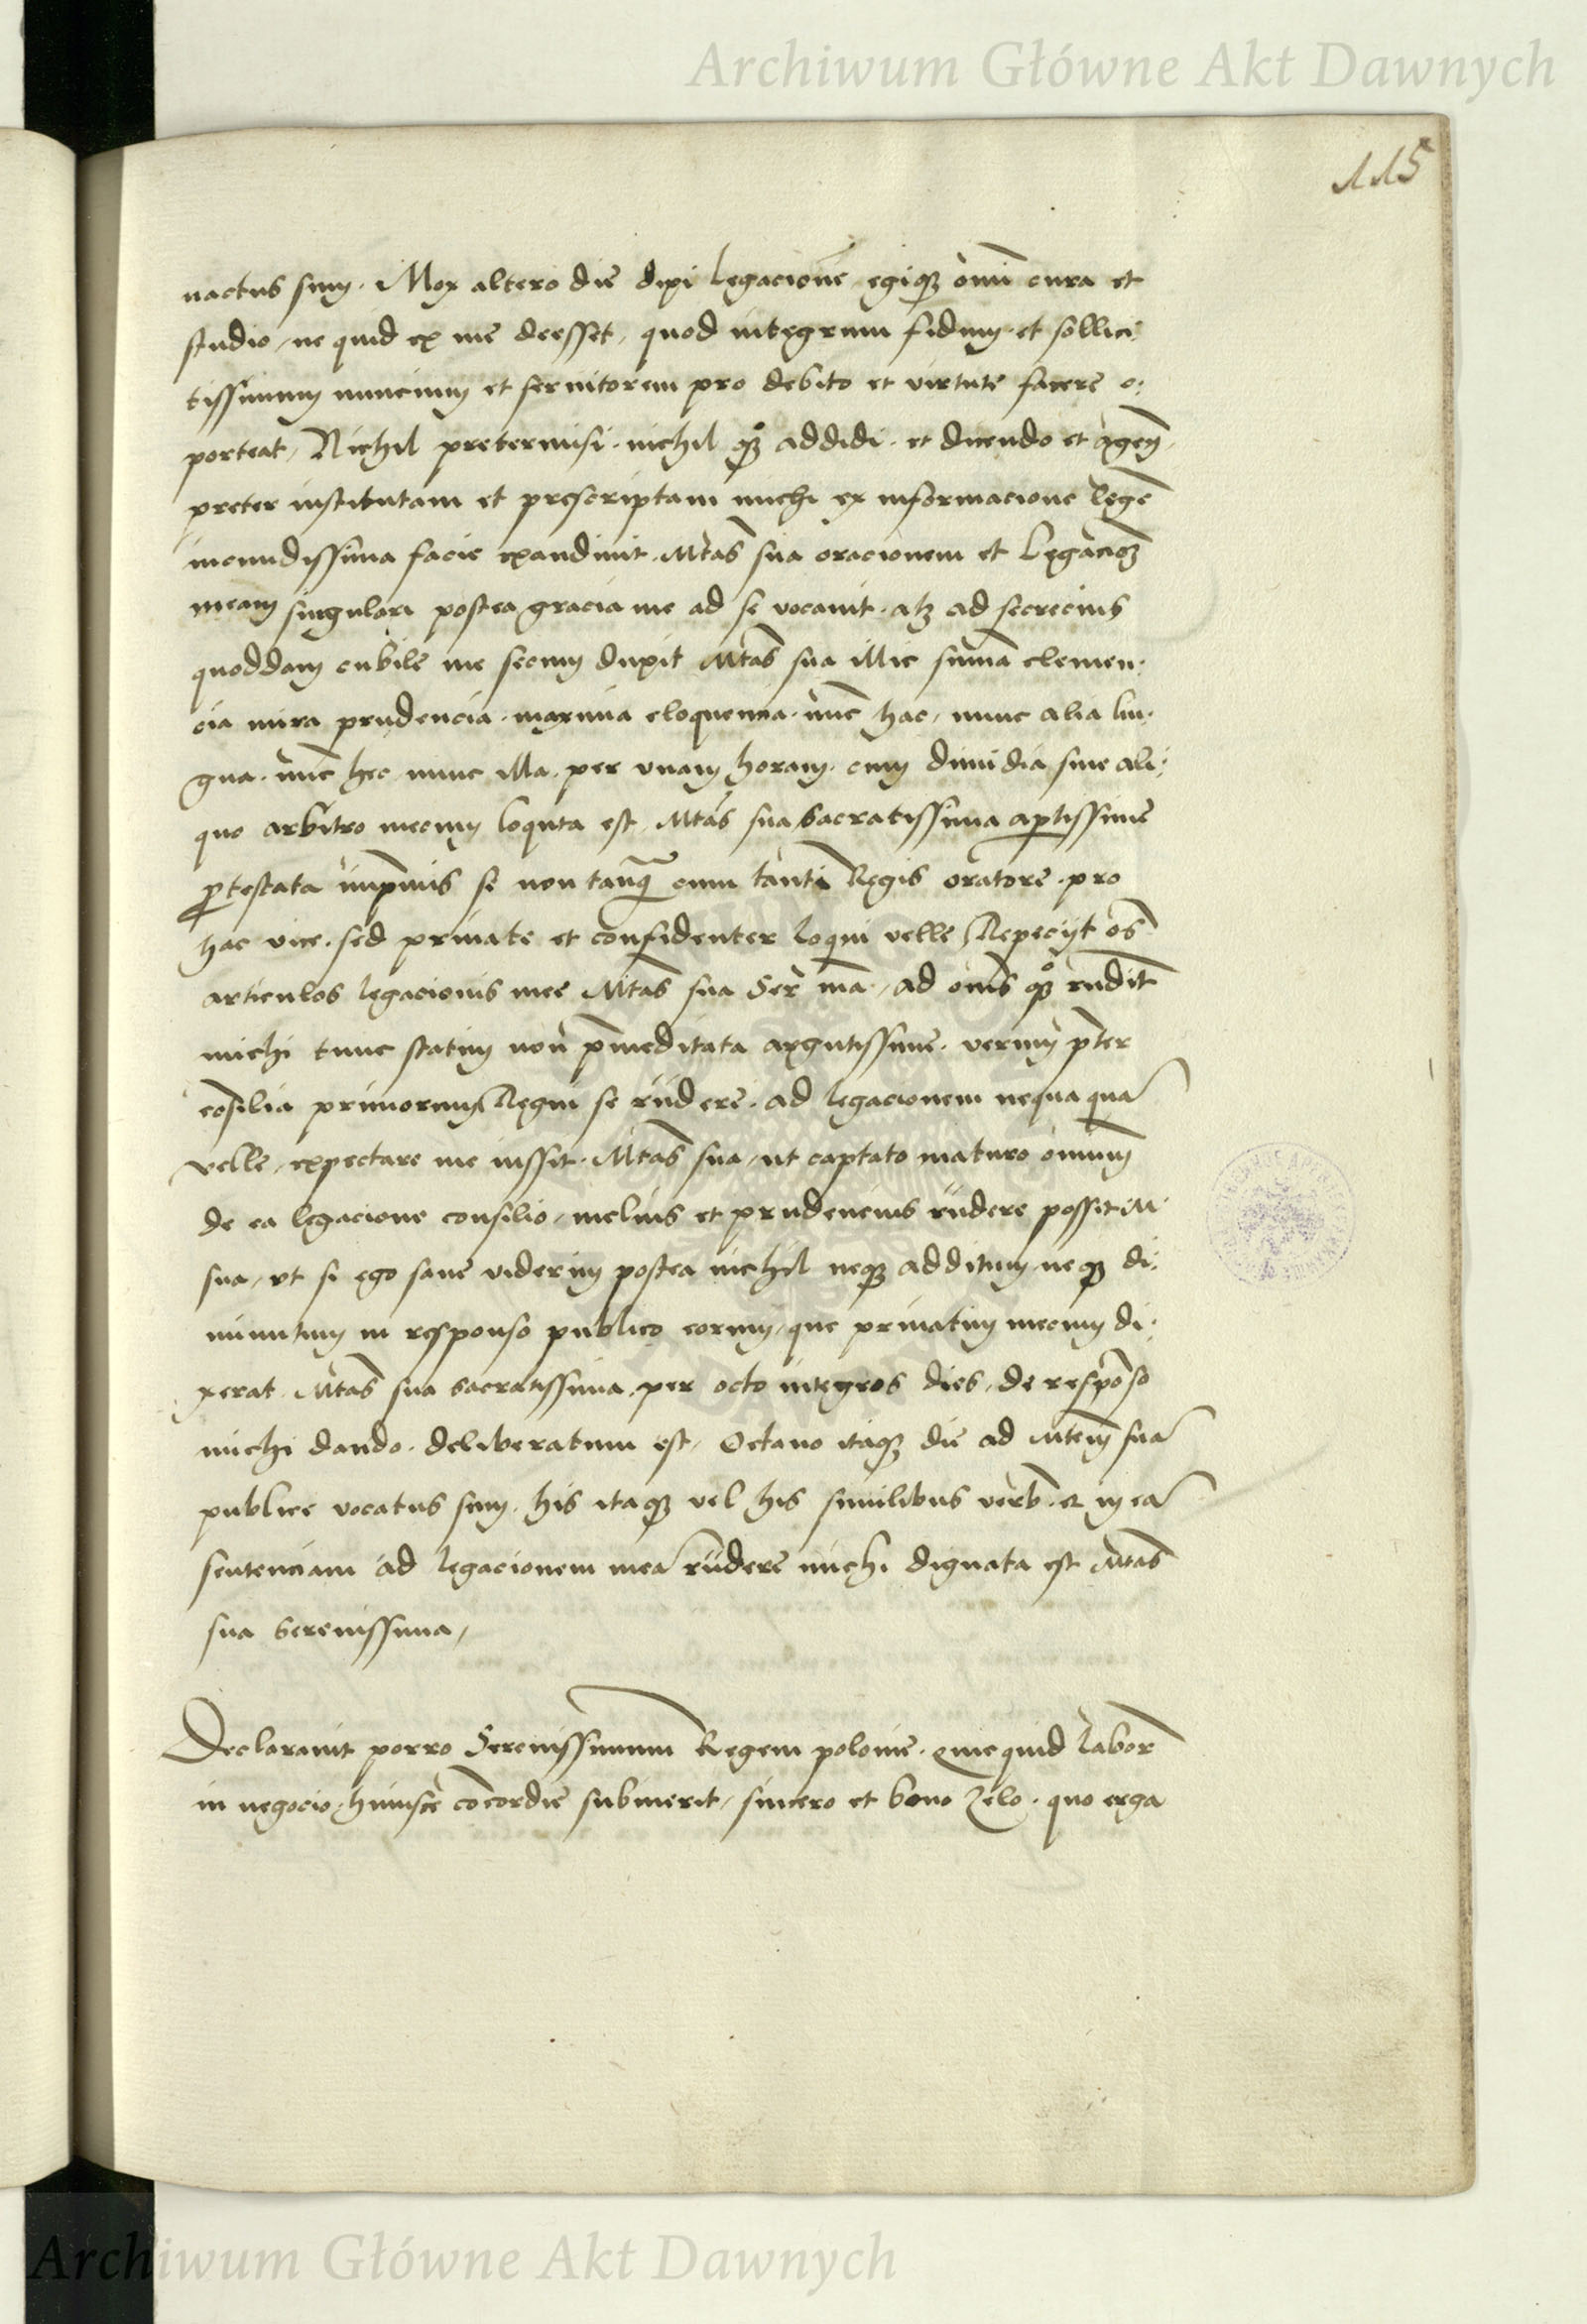 Archiwum Główne Akt Dawnych
115
nactus sum. Mox altero die dixi legacionē egiqꝫ om̄i cura et
studio, ne quid ex me deesset, quod integrum fidum et sollici:
tissimum nuncium et seruitorem pro debito et virtute facere o:
porteat, Nichil pretermisi. nichil qꝫ addidi. et dicendo et agen̄.
preter institutam et prescriptam michi ex informacione legē
iocundissima facie exaudiuit. Mtas̄ sua oracionem et Legacioꝫ
meam singulari postea gracia me ad se vocauit. atꝫ ad secrecius
quoddam cubile me secum duxit Mtas̄ sua illic sum̄a clemen:
cia mira prudencia. maxima eloquencia. nūc hac, nunc alia lin:
gua. nūc hec nunc illa. per vnam horam. cum dimidia sine ali:
quo arbitro mecum loquta est. Mtas̄ sua sacratissima aptissime
ꝓtestata imp̄mis se non tanqȝ cum tanti Regis oratore. pro
hac vice. sed priuate et confidenter loqui velle Repecijt om̄s
articulos legacionis mee Mtas̄ sua Ser ma, ad om̄s qꝫ rn̄dit
michi tunc statim non p̄meditata argutissime. verum p̄ter
cōsilia primorum Regni se rn̄dere. ad legacionem nequaquā
velle, expectare me iussit. Mtas̄ sua, ut captato maturo omnium̄
de ea legacione consilio, melius et prudencius rn̄dere possit M.
sua, vt si ego sane viderim postea nichil neqꝫ additum neqꝫ di:
minutum in responso publico eorum, que priuatim mecum di:
xerat. Mtas̄ sua sacratissima. per octo integros dies, de respōso
michi dando. deliberatum est, Octauo itaqꝫ die ad Mtem̄ suā
publice vocatus sum. his itaqꝫ vel his similibus verb. et in eā
sentenciam ad legacionem meā rn̄dere michi dignata est Mtas̄
sua Serenissima,
Declarauit porro Serenissimum Regem polonie. quicquid labor̄
in negocio huiusce cōcordie subinerit, sincero et bono Zelo. quo erga
Archiwum Główne Akt Dawnych